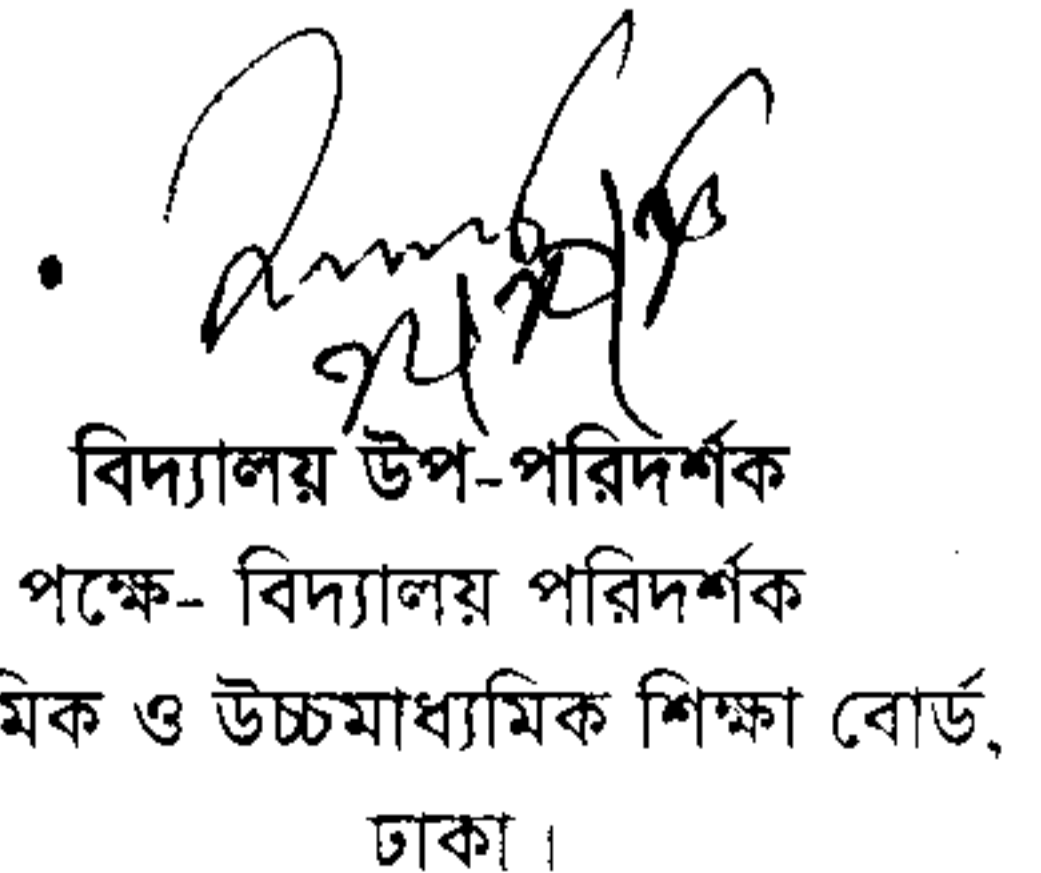 বিদ্যালয় উপ-পরিদর্শক
পক্ষে- বিদ্যালয় পরিদর্শক
মিক ও উচ্চমাধ্যমিক শিক্ষা বোর্ড,
ঢাকা।